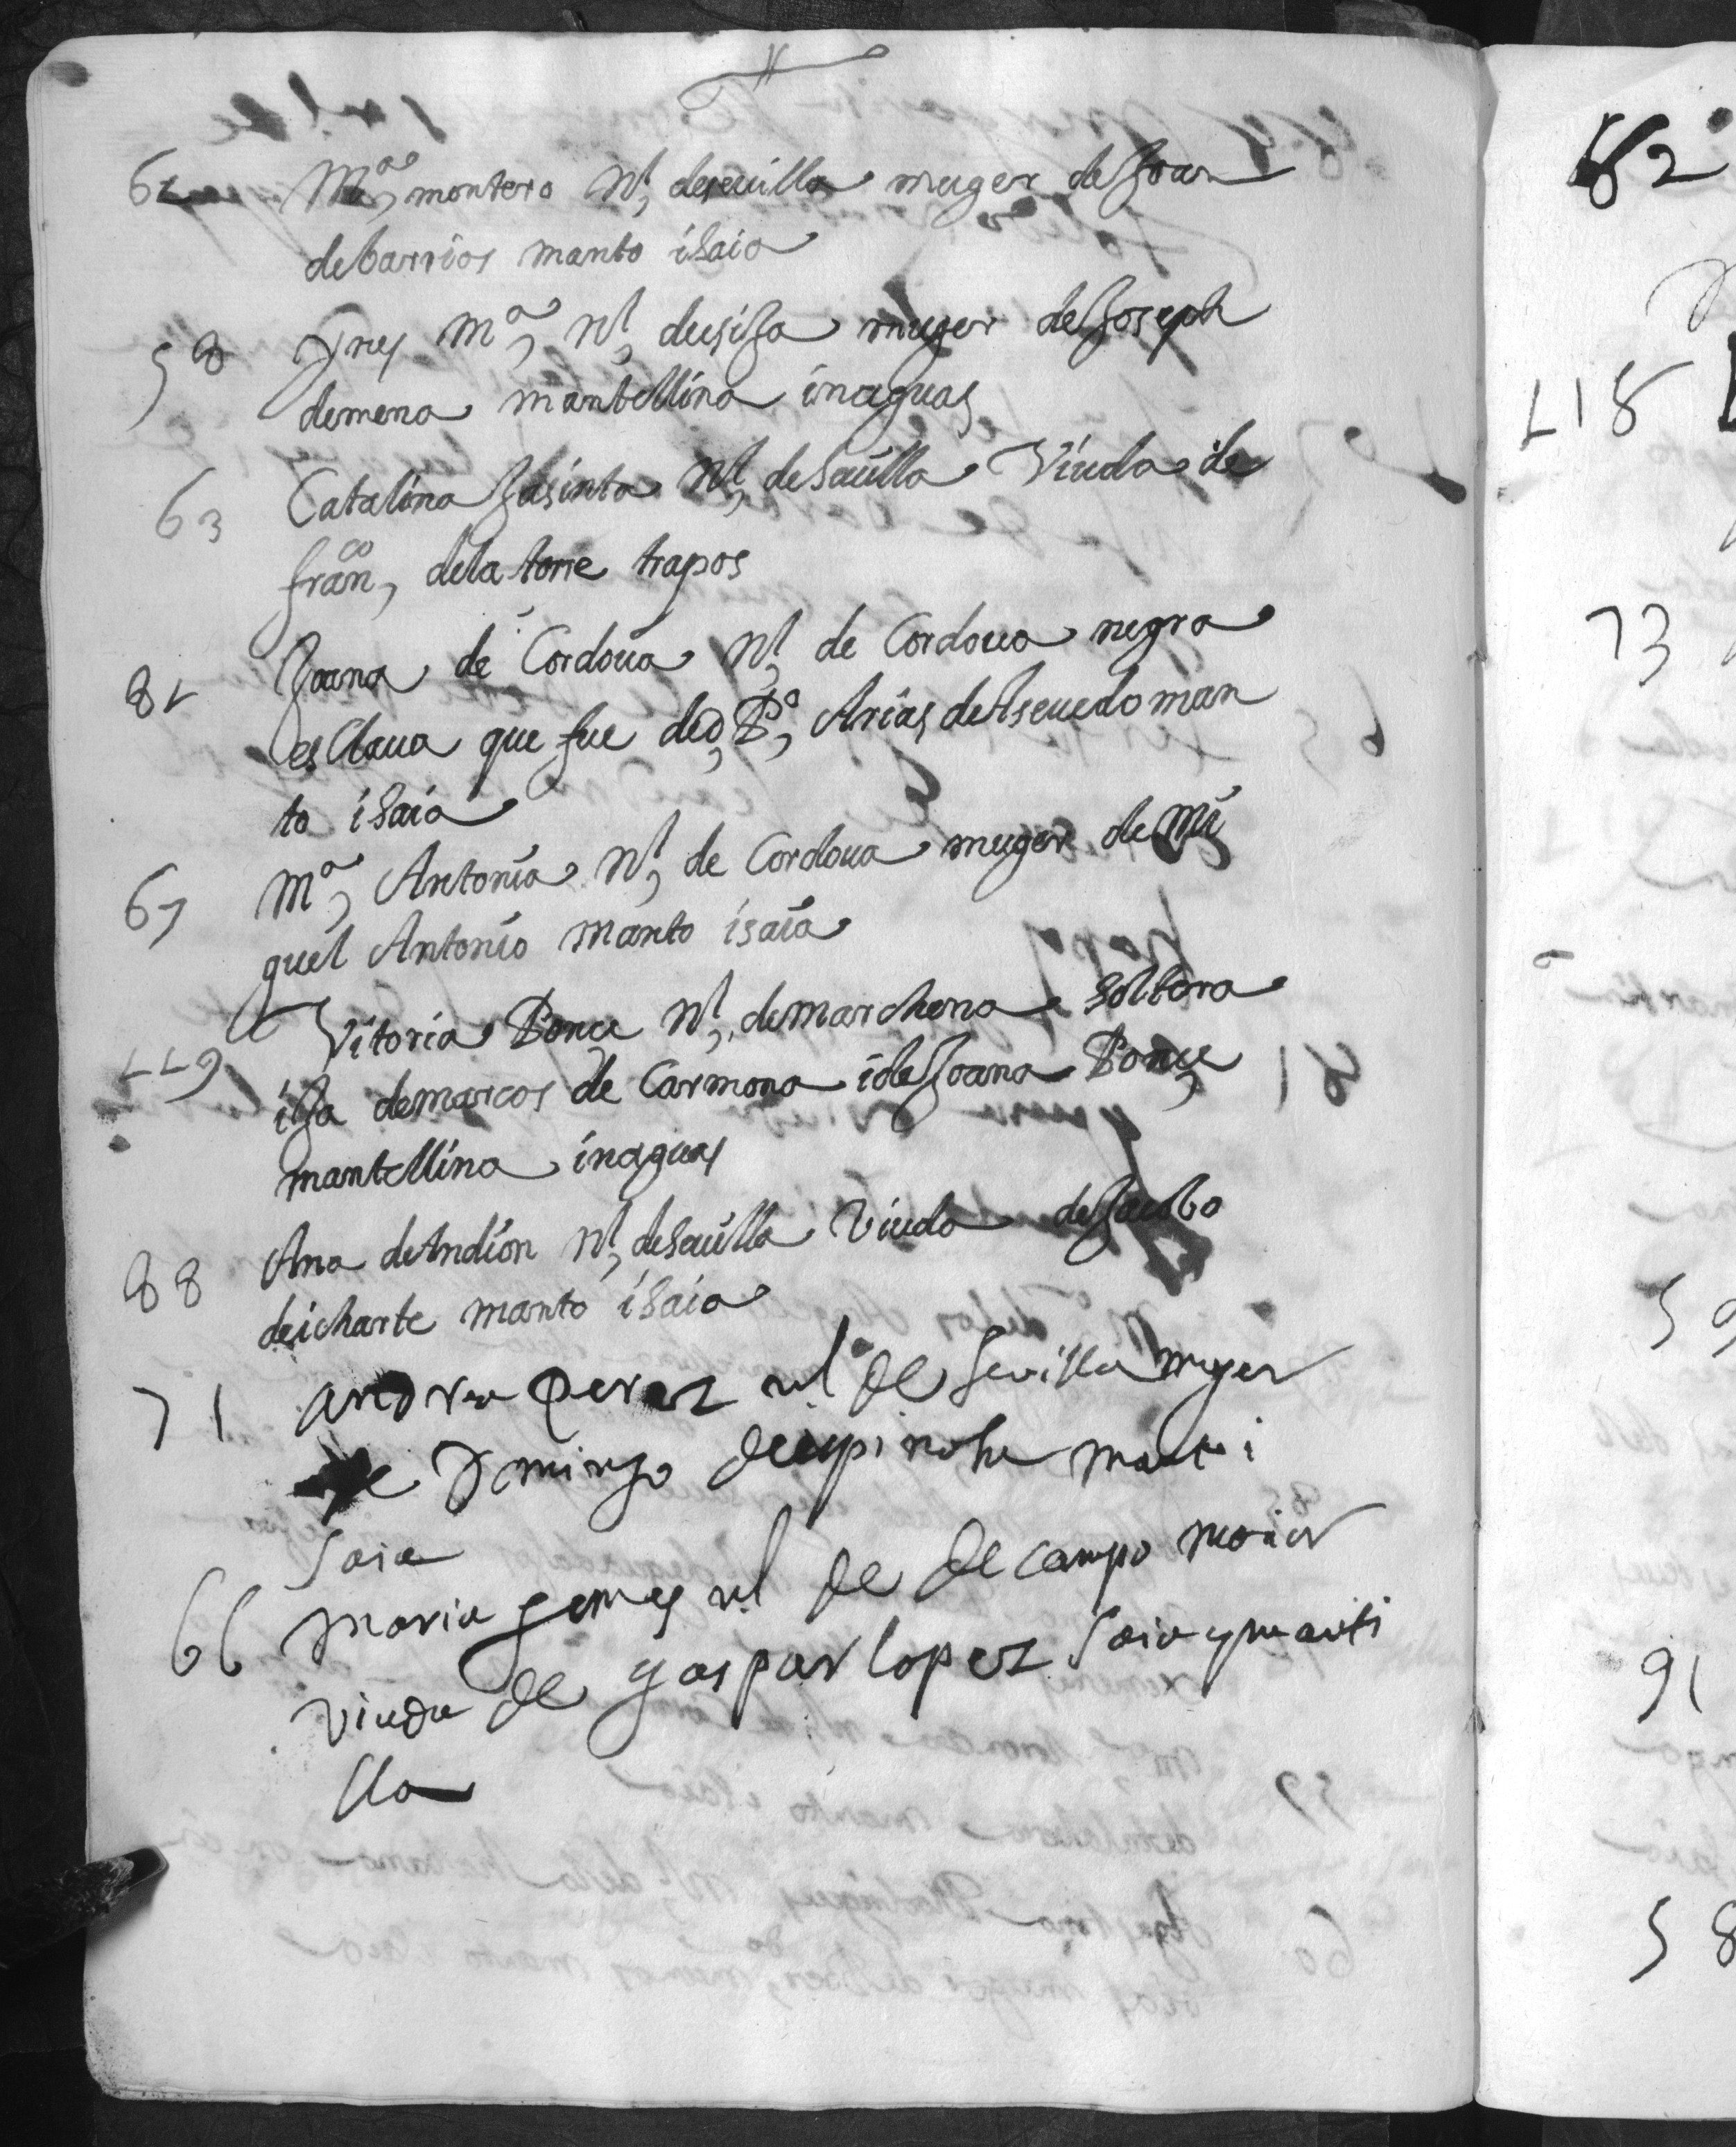 62 Mª montero Nl, de seuilla muger de Joan
de barrios manto isaia
58 Ynes Mª, Nl, desija muger de Joseph
de mena mantellina inaguas
63 Catalina Jasinta Nl, de Seuilla Viuda de
fran,co de la torre trapos
82 Joana de Cordoua Nl, de Cordoua negra
esClaua que fue de D, Pº, Arias de Aseuedo man
to isaia
67 Mª, Antonia Nl, de Cordoua muger de Mi
guel Antonio manto isaia
119 Vitoria Ponçe Nl, de marchena soltera
ija de marcos de Carmona i de Joana Ponçe
mantellina inaguas
88 Ana de Andion Nl, de Seuilla Viuda de Jacobo
de icharte manto isaia
71 andrea perez nl de Sevilla muger
de Domingo de espinosa manto i
Saia
66 maria gomes nl de de campo maior
viuda de gaspar lopez saia y manti
lla
62
118
73
59
91
58